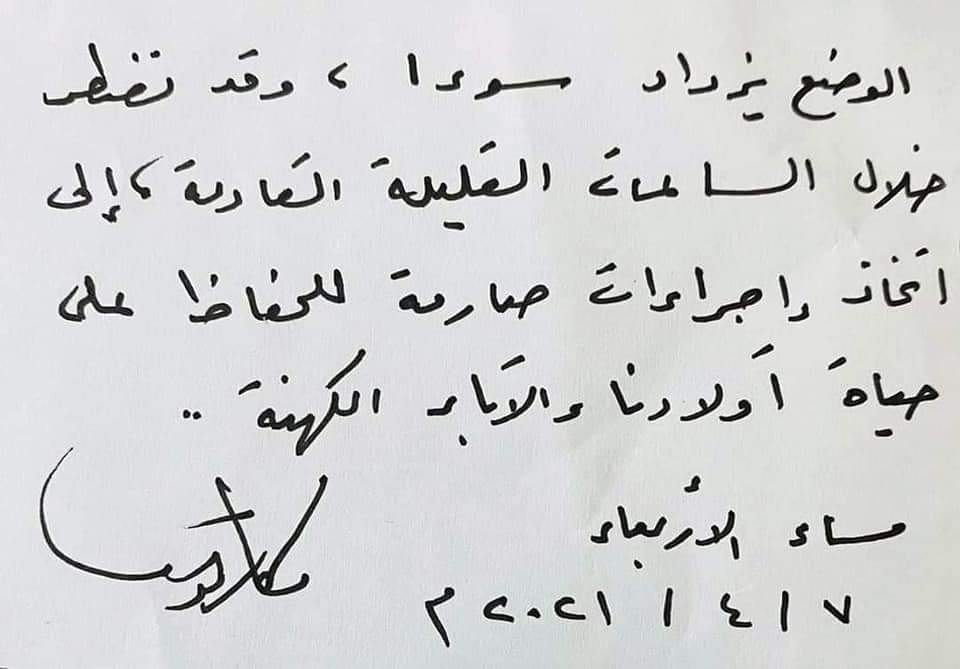 الوضع يزداد سوءا ، وقد نضطر
خلال الساعات القليلة القادمة ، إلى
اتخاذ إجراءات صارمة للحفاظ على
حياة أولادنا والآباء الكهنة ..
مساء الأربعاء
٧ / ٤ / ٢٠٢١ م